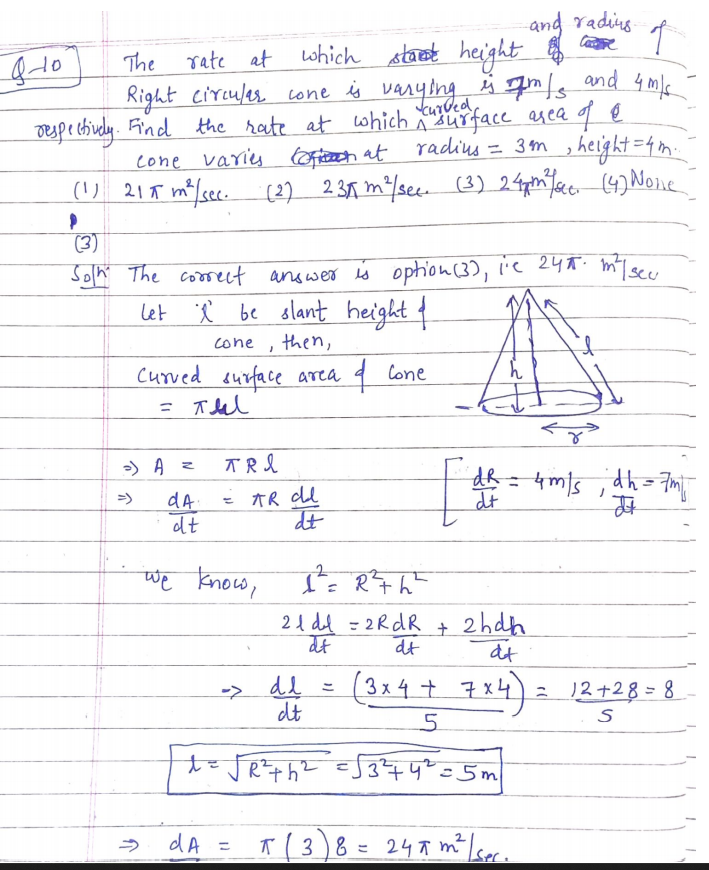 Q-10 The rate at which height and radius of
Right circular cone is varying is 7m/s and 4 m/s
respectively. Find the rate at which curved surface area of
cone varies at radius = 3m, height = 4m.
(1) 21π m²/sec. (2) 23π m²/sec. (3) 24π m²/sec. (4) None
(3)
Soln. The correct answer is option (3), i.e 24π. m²/sec
Let 'l' be slant height of
cone, then,
Curved surface area of Cone
= πrl
h
l
r
⇒ A = πRl
⇒ dA/dt = πR dl/dt [dR/dt = 4m/s, dh/dt = 7m/s
We know, l² = R² + h²
2l dl/dt = 2R dR/dt + 2h dh/dt
⇒ dl/dt = (3×4 + 7×4)/5 = 12+28/5 = 8
l = √R²+h² = √3²+4² = 5m
⇒ dA = π(3)8 = 24π m²/sec.